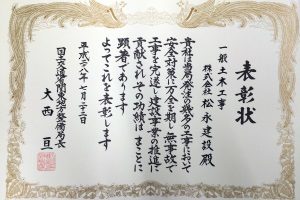 表彰状
一般土木工事
株式会社 松永建設殿
貴社は当局発注の幾多の工事において
安全対策に万全を期し無事故で
工事を完遂し建設事業の推進に
貢献されその功績はまことに
顕著であります
よってこれを表彰します
平成二十八年七月二十二日
国土交通省関東地方整備局長
大西 亘